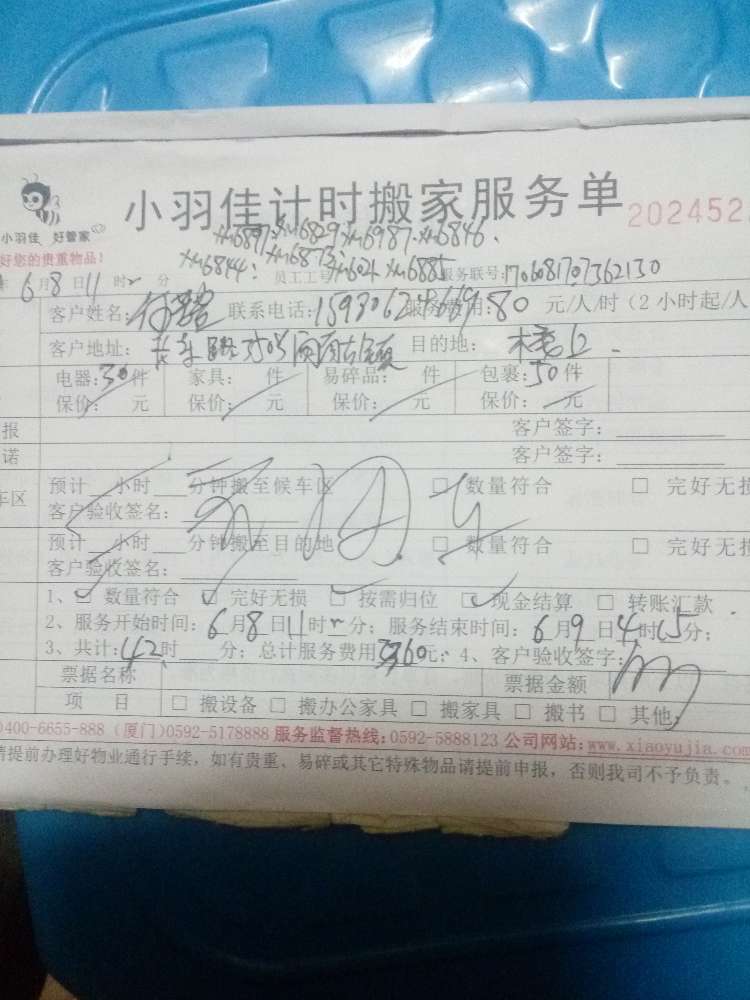 小羽佳计时搬家服务单
202452
小羽佳 好管家
好您的贵重物品！
xm6897 xm6829 xm6987 xm6846
xm6844 xm6873 xm6885
员工工号 服务联号：1706081707362130
年6月8日11时 分
客户姓名： 联系电话：1593062 服务费用：80元/人/时（2小时起/人
客户地址： 目的地：楼上
电器：30件 家具： 件 易碎品： 件 包裹：50件
保价： 元 保价： 元 保价： 元 保价： 元
报 客户签字：
诺 客户签字：
车区 预计 小时 分钟搬至候车区 □ 数量符合 □ 完好无损
客户验收签名：
预计 小时 分钟搬至目的地 □ 数量符合 □ 完好无损
客户验收签名：
1、□ 数量符合 ☑ 完好无损 □ 按需归位 ☑ 现金结算 □ 转账汇款
2、服务开始时间：6月8日11时 分；服务结束时间：6月9日4时15分；
3、共计：42时 分；总计服务费用3360元；4、客户验收签字：
票据名称 票据金额
项 目 □ 搬设备 □ 搬办公家具 □ 搬家具 □ 搬书 □ 其他
0400-6655-888（厦门）0592-5178888 服务监督热线：0592-5888123 公司网站：www.xiaoyujia.com
请提前办理好物业通行手续，如有贵重、易碎或其它特殊物品请提前申报，否则我司不予负责。